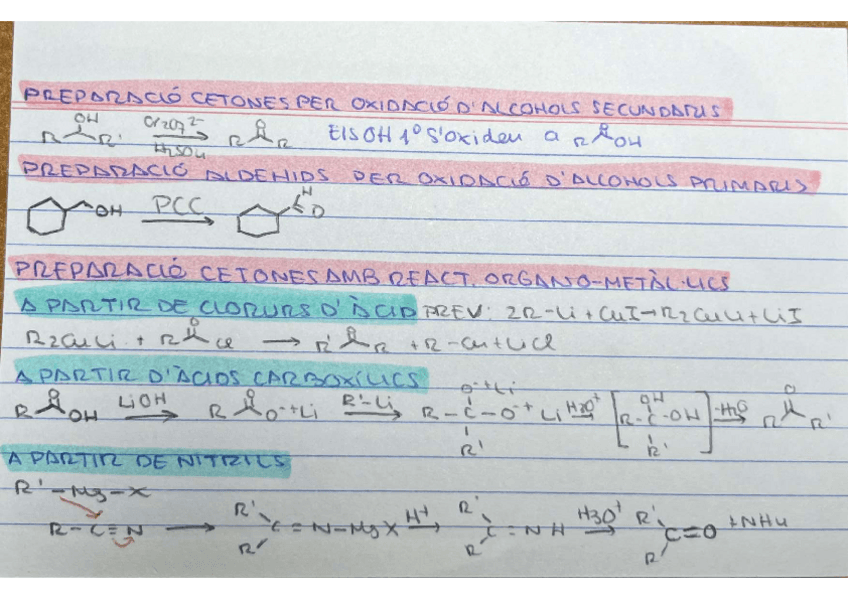 PREPARACIÓ CETONES PER OXIDACIÓ D'ALCOHOLS SECUNDARIS
OH Cr2O7 2- O O
R R' H2SO4 R R Els OH 1º s'oxiden a R OH
PREPARACIÓ ALDEHIDS PER OXIDACIÓ D'ALCOHOLS PRIMARIS
OH PCC → H O
PREPARACIÓ CETONES AMB REACT. ORGANO-METÀL·LICS
A PARTIR DE CLORURS D'ÀCID PREV: 2R-Li + CuI → R2CuLi + LiI
R2CuLi + R O Cl → R' O R + R-Cu + LiCl
A PARTIR D'ÀCIDS CARBOXÍLICS
R O OH LiOH → R O O-+Li R'-Li → R-C-O-+Li O-+Li R' H3O+ → [R-C-OH OH R'] -H2O → R O R'
A PARTIR DE NITRILS
R'-Mg-X
R-C≡N → R' R' C=N-MgX H+ → R' R C=NH H3O+ → R' R C=O +NH4